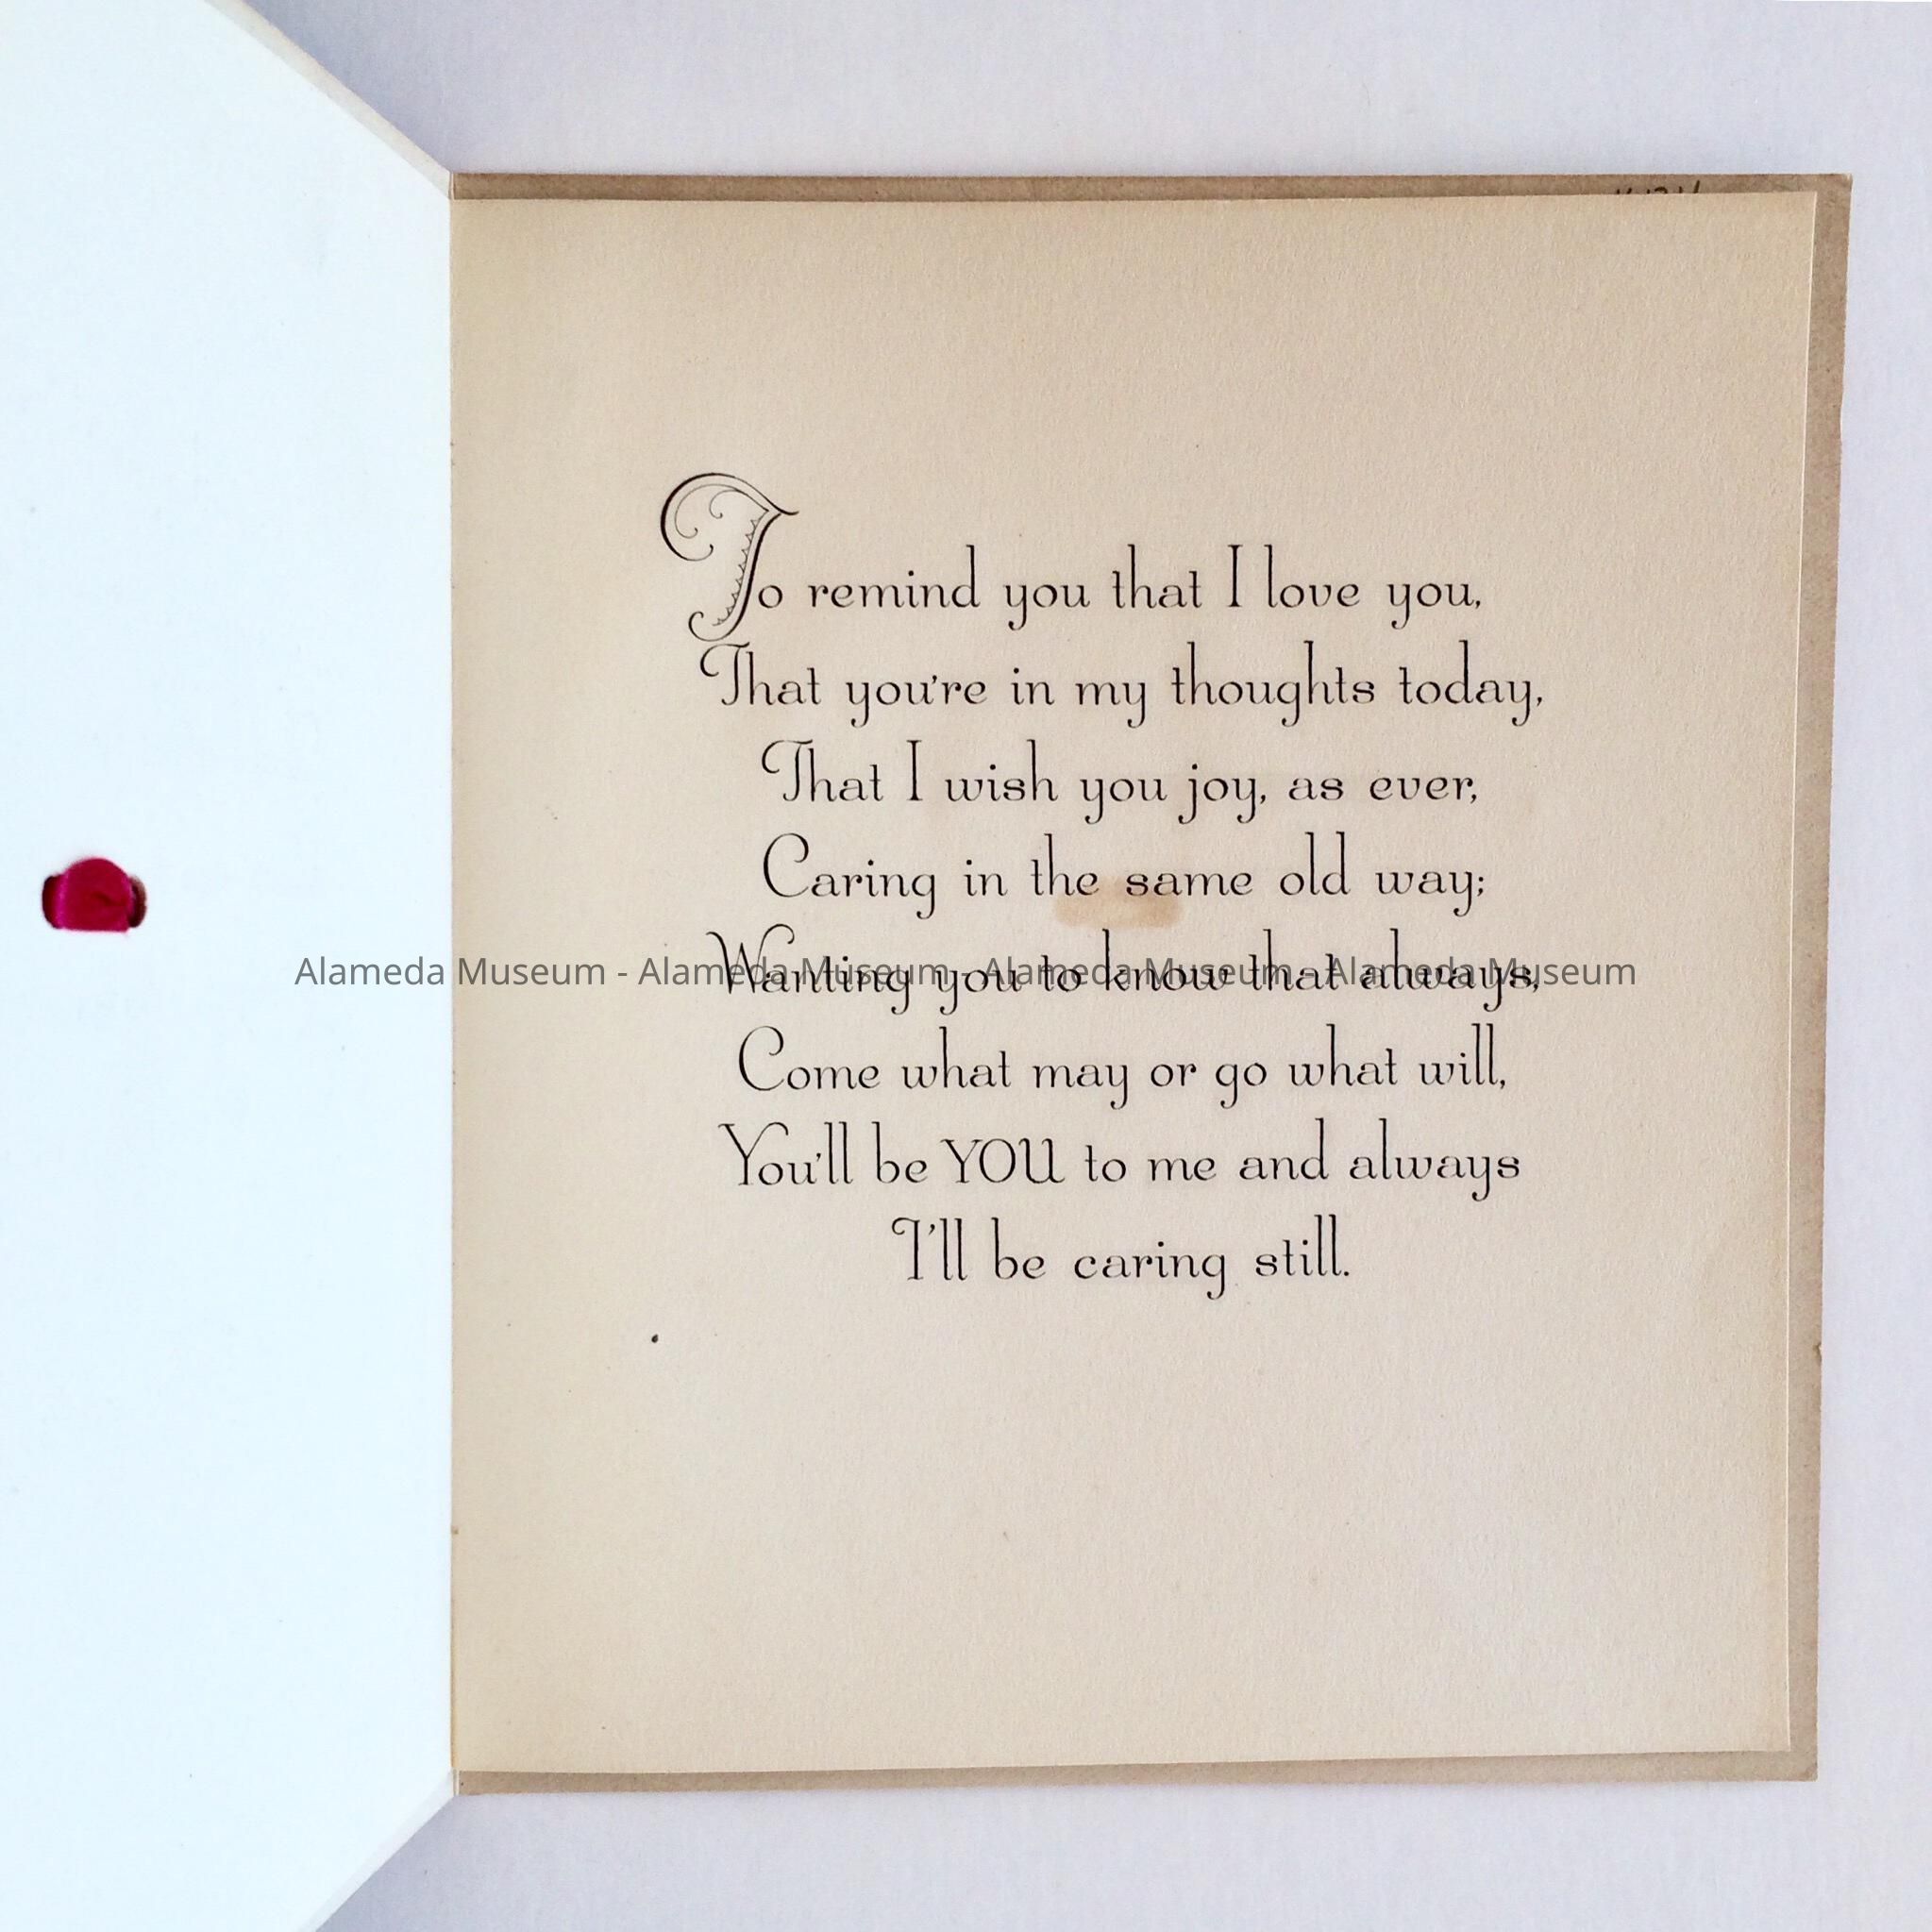 To remind you that I love you,
That you're in my thoughts today,
That I wish you joy, as ever,
Caring in the same old way;
Wanting you to know that always,
Alameda Museum - Alameda Museum - Alameda Museum - Alameda Museum
Come what may or go what will,
You'll be YOU to me and always
I'll be caring still.